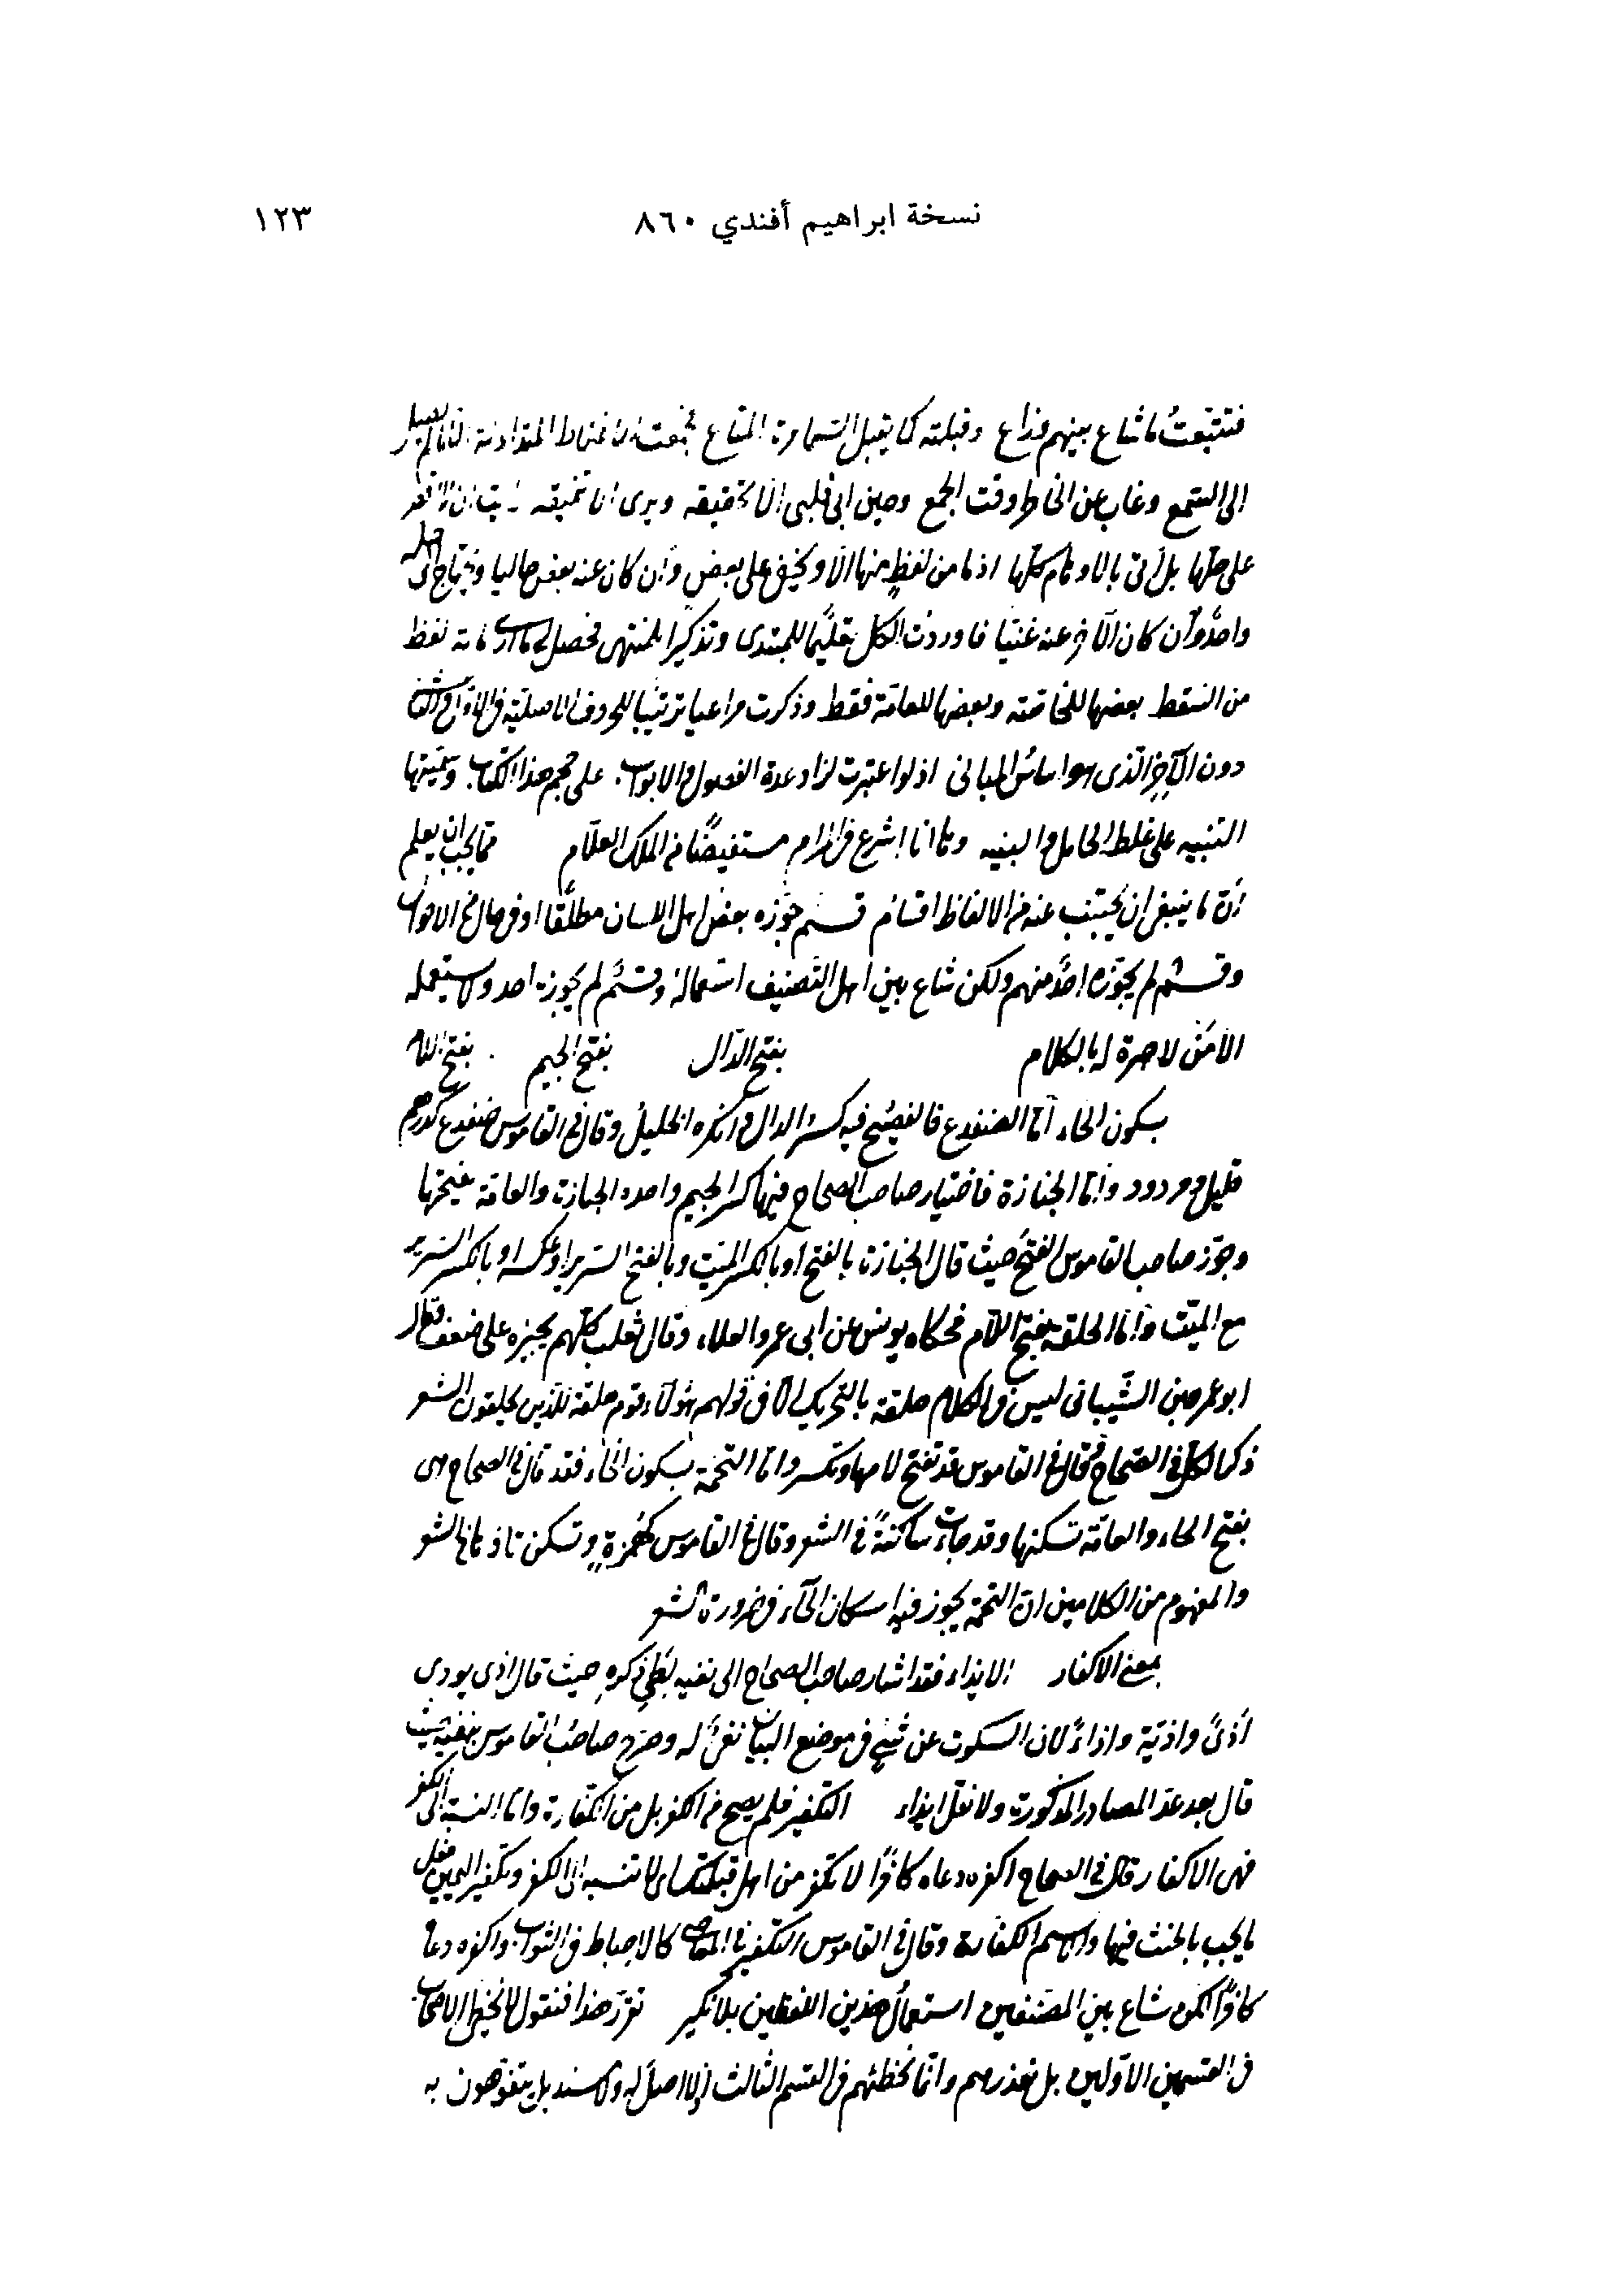 نسخة ابراهيم أفندي ٨٦٠ ١٢٣
فتتبعتُ ما شاع بينهم وذاع وقبلته كما يقبل السماسرة المتاع فجمعت
الى التجمع وغاب عن الخاطر وقت الجمع وحين ابى قلبى الا تحقيقه ويرى
على جلّها بل أتى بالاوهام كلّها اذ ما من لفظٍ منها الّا ويخفى على بعض وان كان عنه بعض خاليا ويحتاج الى
واحدٌ وان كان الآخر عنه غنيّا فاوردت الكل تعليمًا للمبتدى وتذكيرا للمنتهى فحصل لى لفظ
من السقط بعضها للخاصّة وبعضها للعامّة فقط وذكرت مراعيا ترتيبا للحروف الاصلية فى الاوائل
دون الآخِر الذى هو اساسُ المبانى اذ لو اعتبرت لزاد عدة الفصول والابواب على حجم هذا الكتاب وسمّيتها
التنبيه على غلط الخامل والنبيه وها انا اشرع فى المرام مستفيضًا من الملك العلّام ممّا يجب ان يعلم
انّ ما ينبغى ان يجتنب عنه من الالفاظ اقسام قسم جوّزه بعض اهل اللسان مطلقًا او فى حال من الاحوال
وقسم لم يجوّزه احدٌ منهم ولكن شاع بين اهل التصنيف استعمالهُ وقسمٌ لم يجوزه احد ولا يستعمله
الا من لا خبرة له بالكلام بفتح الدّال بفتح الجيم بفتح اللام
بسكون الخاء امّا الضفدع فالفصيح فيه كسر الدال وانكره الخليل وقال فى القاموس ضفدع كدرهم
قليل ومردود وامّا الجنازة فاختيار صاحب الصحاح فيها كسر الجيم واحده الجنازة والعامّة بفتحها
وجوّز صاحب القاموس الفتحَ حيث قال الجنازة بالفتح او بالكسر الميّت وبالفتح السرير او عكسه او بالكسر السرير
مع الميّت وامّا الحلقة بفتح اللام فحكاه يونس عن ابى عمرو العلاء وقال ثعلب كلّهم يجيزه على ضعف وقال
ابو عمرو بن الشّيبانى ليس فى الكلام حلقة بالتحريك الّا فى قولهم هؤلاء قوم حلقة للّذين يحلقون الشعر
ذكر الكل فى الصحاح وقال فى القاموس قد تفتح لامها وتكسر وامّا التخمة بسكون الخاء فقد قال فى الصحاح هى
بفتح الخاء والعامّة تسكنها وقد جاءت ساكنةً فى الشعر وقال فى القاموس كهُمَزةٍ وتسكن خاؤها فى الشعر
والمفهوم من الكلامين انّ التخمة يجوز فيها اسكان الخاء فى ضرورة الشعر
بمعنى الاكفار الايذاء فقد اشار صاحب الصحاح الى نفيه بطىّ ذكره حيث قال اذى يوذى
أذىً واذيّة واذاءً لان السكوت عن شىءٍ فى موضع البيان نفىٌ له وصرّح صاحب القاموس بنفيه حيث
قال بعد عدّ المصادر المذكورة ولا تقل ايذاء التكفير فلم يصح من الكفر بل من الكفّارة وامّا النسبة الى الكفر
فهى الاكفار قال فى الصحاح اكفره دعاه كافرًا لا تكفر من اهل قبلتك اى لا تنسبه الى الكفر وتكفير اليمين فعل
ما يجب بالحنث فيها والاسم الكفارة وقال فى القاموس التكفير فى المعاصى كالاحباط فى الثواب واكفره دعاه
كافرًا لكن شاع بين المصنفين استعمالُ هذين اللفظين بلا نكير تقرّر هذا فنقول لا نخطئ الاصحاب
فى القسمين الاوّلين بل نعذرهم وانّما نخطئهم فى القسم الثالث اذ لا اصل له ولا سند بل يتفوّهون به